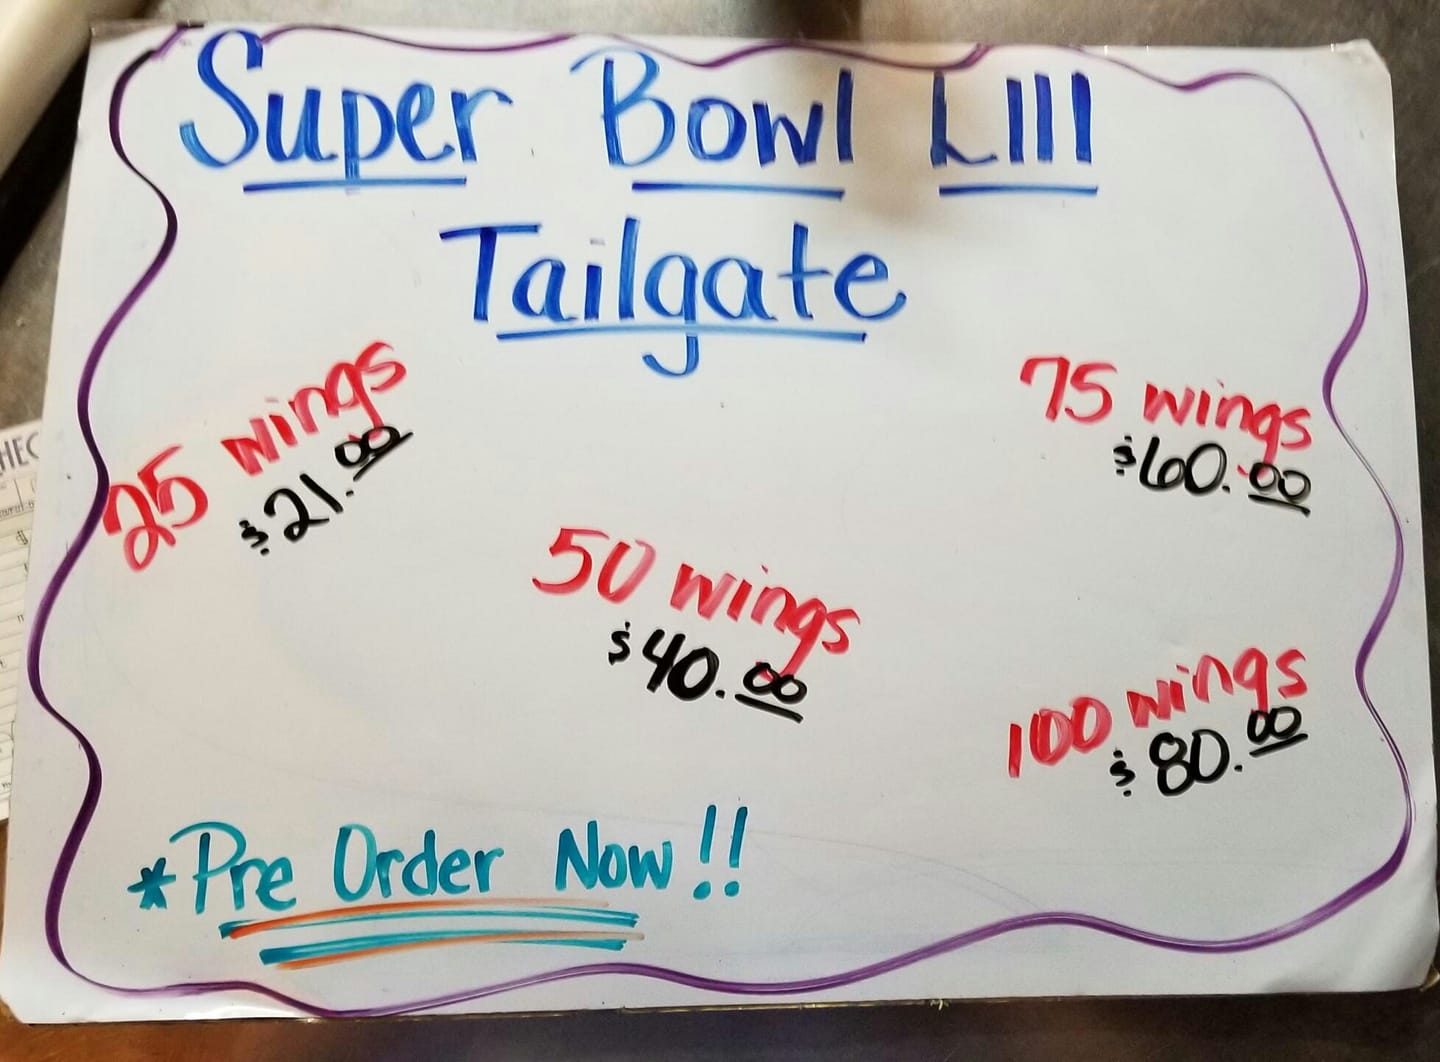 Super Bowl LIII
Tailgate
25 wings
$21.00
75 wings
$60.00
50 wings
$40.00
100 wings
$80.00
*Pre Order Now!!